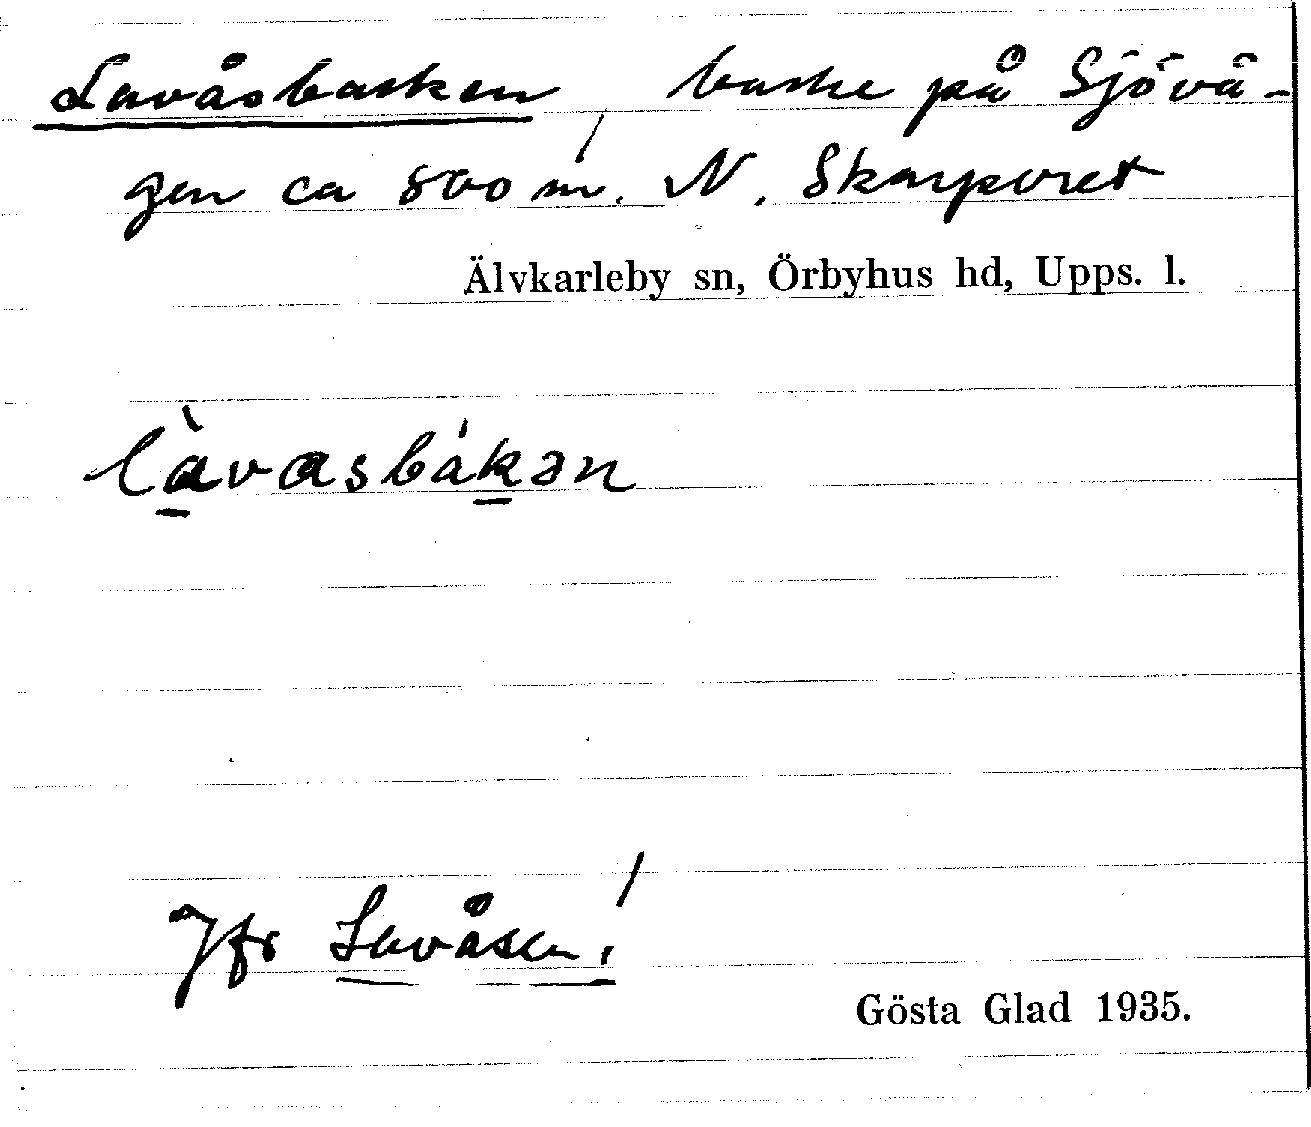 Lavåsbacken, backe på Sjövä-
gen ca 800 m. N. Skarporet
Älvkarleby sn, Örbyhus hd, Upps. l.
làvasbákən
Jfr Lavåsen!
Gösta Glad 1935.